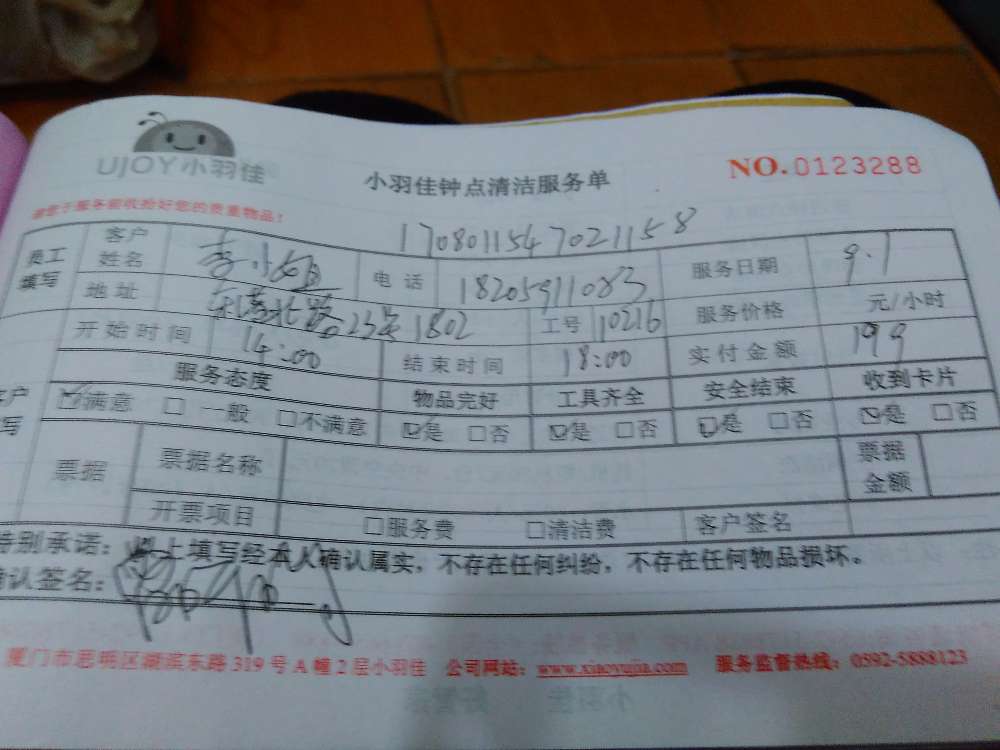 UJOY小羽佳
小羽佳钟点清洁服务单
NO.0123288
请您于服务前收拾好您的贵重物品！
1708011547021158
员工填写 客户姓名 李小姐 电话 18205911083 服务日期 9.1
地址 北路23号1802 工号 10216 服务价格 元/小时
开始时间 14:00 结束时间 18:00 实付金额 199
客户填写 服务态度 物品完好 工具齐全 安全结束 收到卡片
☑满意 □一般 □不满意 ☑是 □否 ☑是 □否 ☑是 □否 ☑是 □否
票据 票据名称 票据金额
开票项目 □服务费 □清洁费 客户签名
特别承诺：以上填写经本人确认属实，不存在任何纠纷，不存在任何物品损坏。
确认签名：
厦门市思明区湖滨东路319号A幢2层小羽佳 公司网站：www.xiaoyujia.com 服务监督热线：0592-5888123